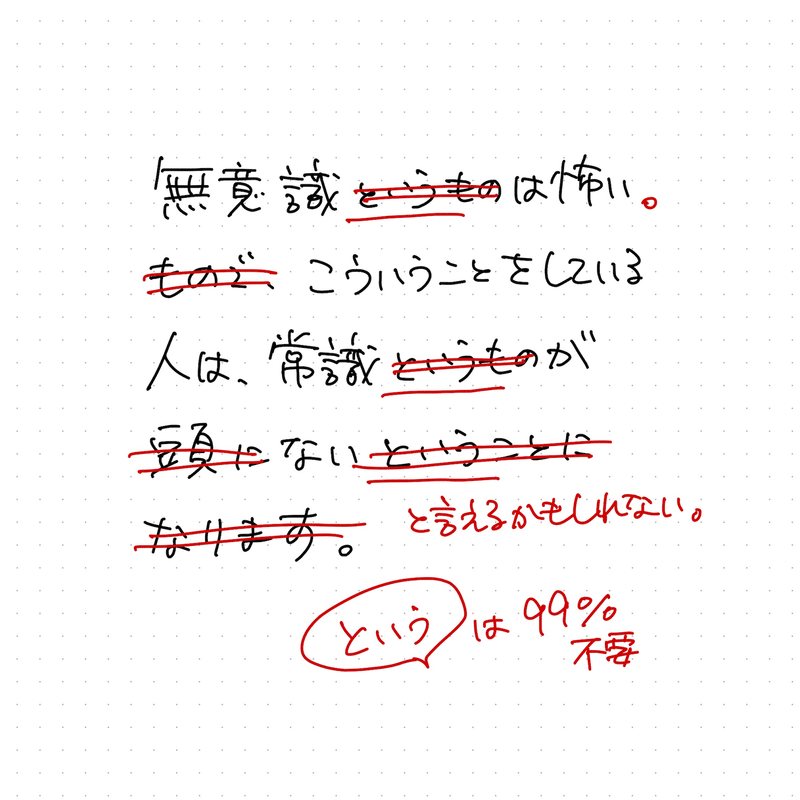 無意識というものは怖い。
もので、こういうことをしている
人は、常識というものが
頭にないということに
なります。と言えるかもしれない。
というは99%
不要